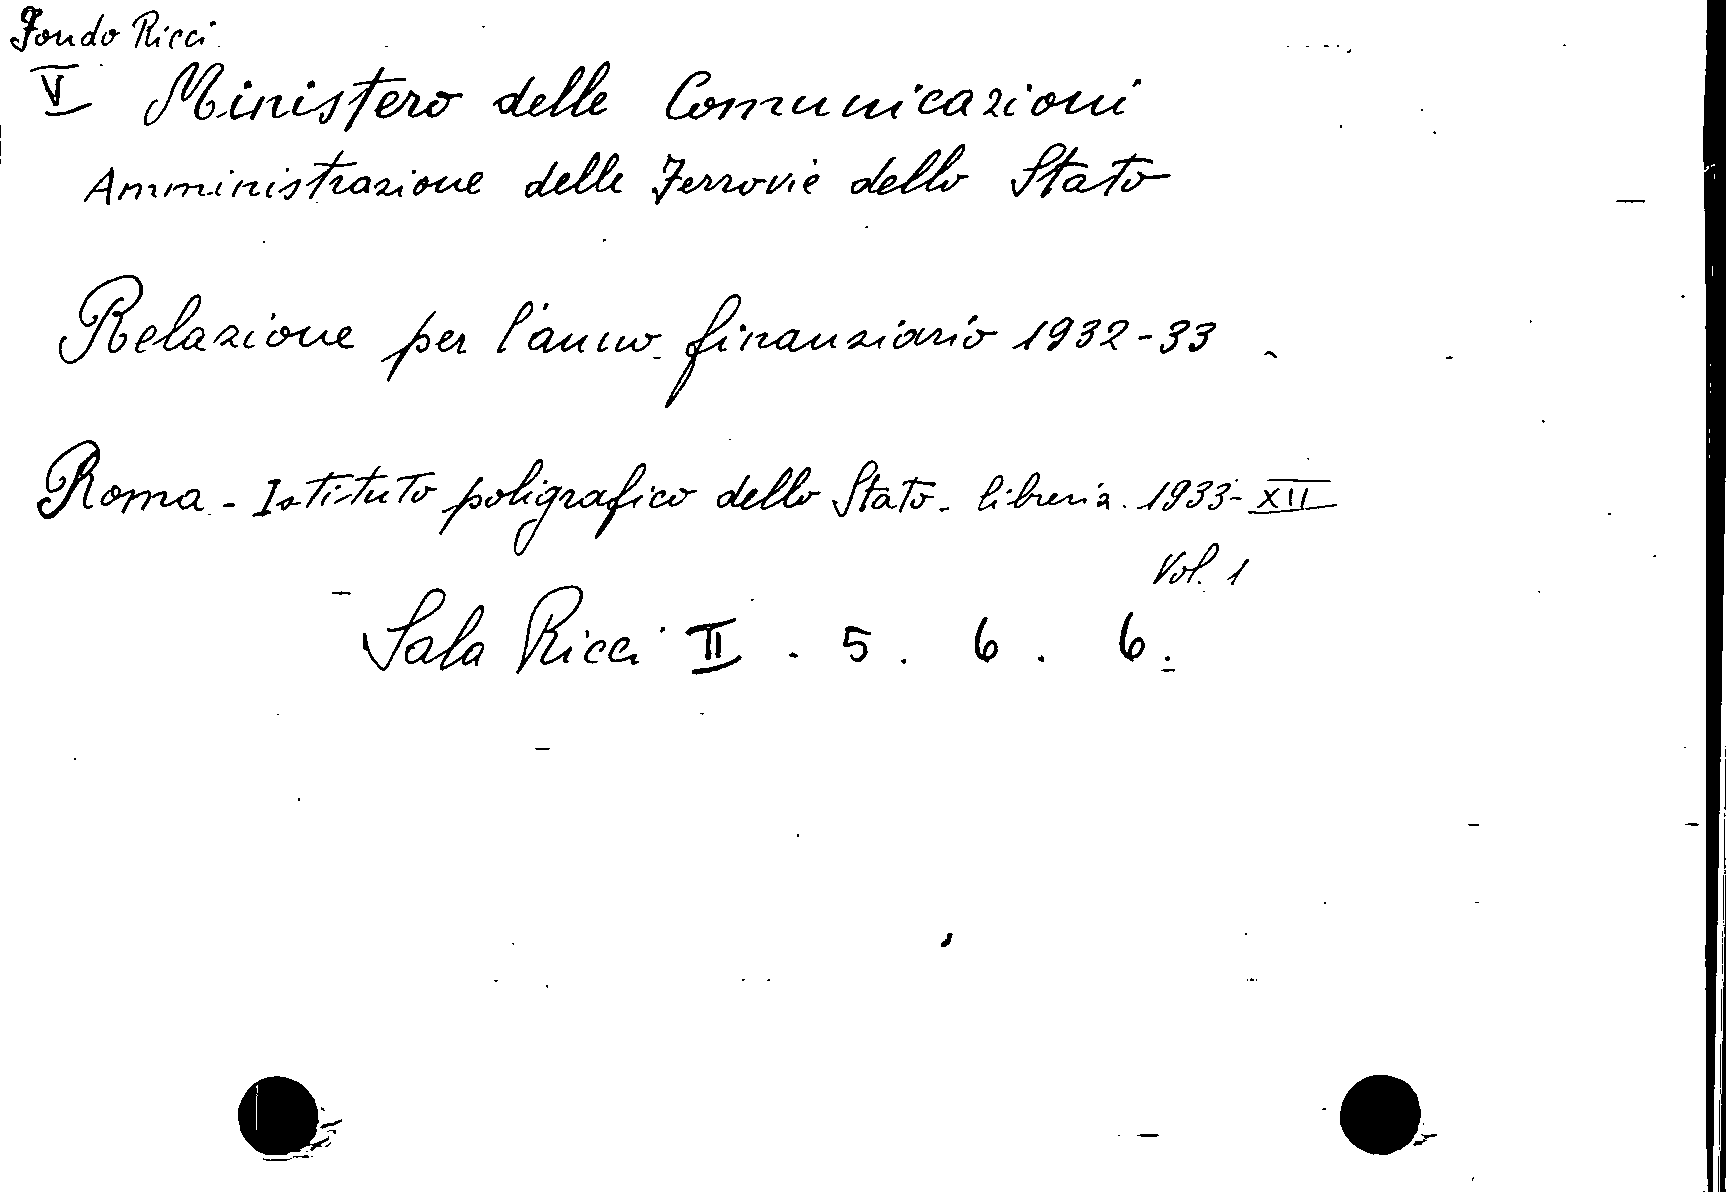 Fondo Ricci
V Ministero delle Comunicazioni
Amministrazione delle Ferrovie dello Stato
Relazione per l'anno finanziario 1932-33
Roma - Istituto poligrafico dello Stato - libreria. 1933-XII
Vol. 1
Sala Ricci II . 5 . 6 . 6.